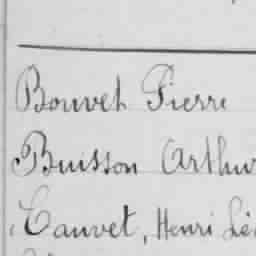 Bouvet Pierre
Buisson Arthur
Cauvet, Henri Lé